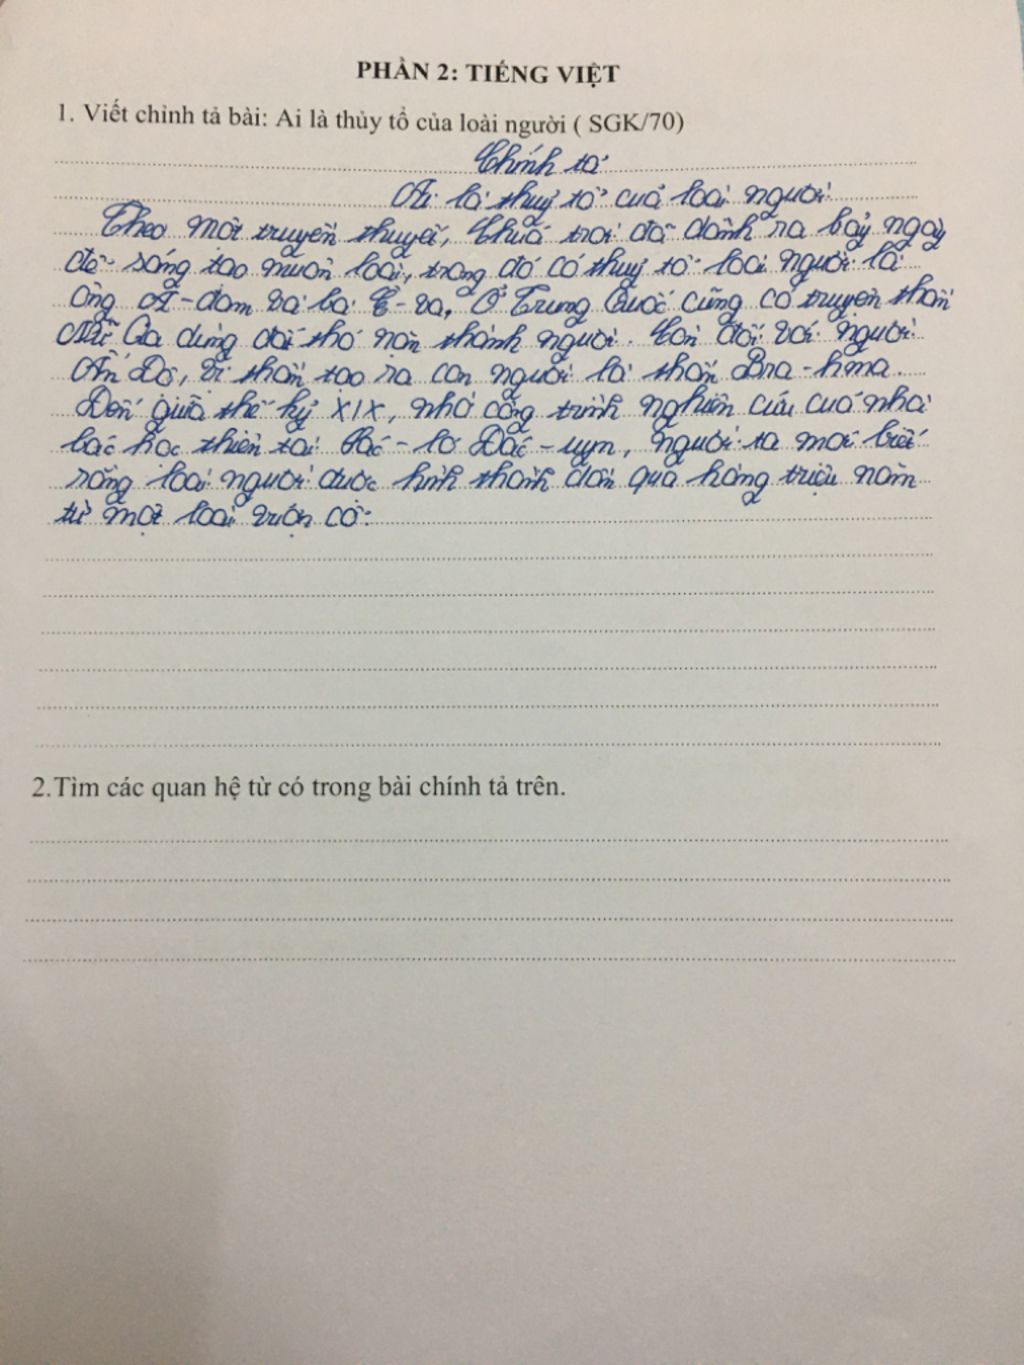 PHẦN 2: TIẾNG VIỆT
1. Viết chỉnh tả bài: Ai là thủy tổ của loài người ( SGK/70)
Chính tả
Ai là thuỷ tổ của loài người
Theo một truyền thuyết, Chúa trời đã dành ra bảy ngày
để sáng tạo muôn loài, trong đó có thuỷ tổ loài người là
ông A-đam và bà Ê-va, Ở Trung Quốc cũng có truyện thần
Nữ Oa dùng đất thó nặn thành người. Còn đối với người
Ấn Độ, vị thần tạo ra con người là thần Bra-hma.
Đến giữa thế kỷ XIX, nhờ công trình nghiên cứu của nhà
bác học thiên tài Sác-lơ Đác-uyn, người ta mới biết
rằng loài người được hình thành dần qua hàng triệu năm
từ một loài vượn cổ.
2.Tìm các quan hệ từ có trong bài chính tả trên.